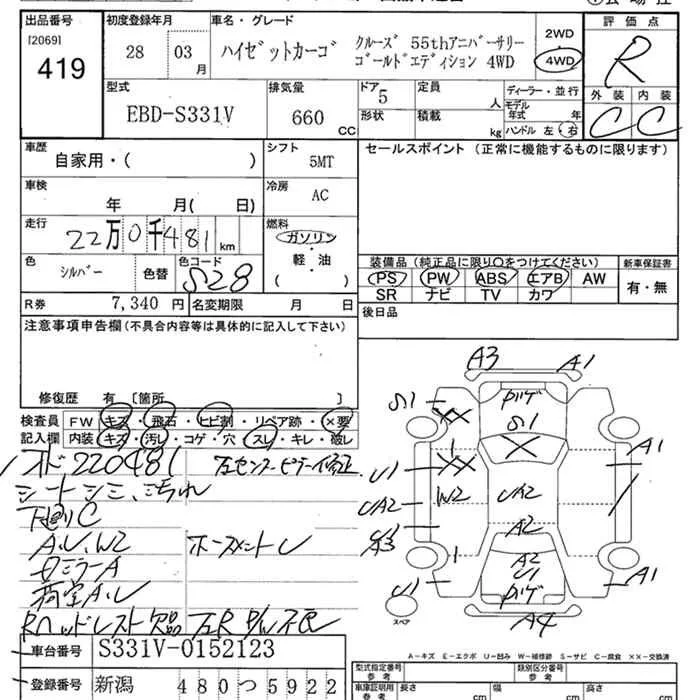 出品番号 初度登録年月 車名・グレード 評価点
[2069]
419
28 03 月
ハイゼットカーゴ クルーズ 55thアニバーサリー
ゴールドエディション 4WD
2WD
4WD
R
型式 排気量 ドア 定員 ディーラー・並行 外装 内装
EBD-S331V 660 CC 5 人
モデル年式 年
形状 積載 kg ハンドル 左・右 C C
車歴 シフト セールスポイント (正常に機能するものに限ります)
自家用・( ) 5MT
車検 冷房
年 月( 日) AC
走行 燃料
22万0千481 km ガソリン
軽・油
( )
色 色コード
シルバー 色替 S28
装備品 (純正品に限り○をつけてください) 新車保証書
PS PW ABS エアB AW 有・無
SR ナビ TV カワ
R券 7,340 円 名変期限 月 日 後日品
注意事項申告欄 (不具合内容等は具体的に記入して下さい)
修復歴 有 [箇所 ]
検査員 FW キズ・飛石・ヒビ割・リペア跡・×要
記入欄 内装 キズ・汚レ・コゲ・穴・スレ・キレ・破レ
メド220481 左センターピラー修正
シートシミ、汚れ
下廻りC
A、U、W2 ホースメントU
ミラーA
荷室A、U
Rヘッドレスト欠品 左R P/W不良
車台番号 S331V-0152123
登録番号 新潟 480つ5922
A3 A1
バリゲ
S1 S1
XX X
U1 XX A1
W2 UA2 UA2
A3 A2
A2
U1 U1 A1
バリゲ
スペア A4
A-キズ E-エクボ U-凹み W-補修跡 S-サビ C-腐食 ××-交換済
型式指定番号 参考 類別区分番号 参考
車庫証明用 参考 長さ cm 幅 cm 高さ cm